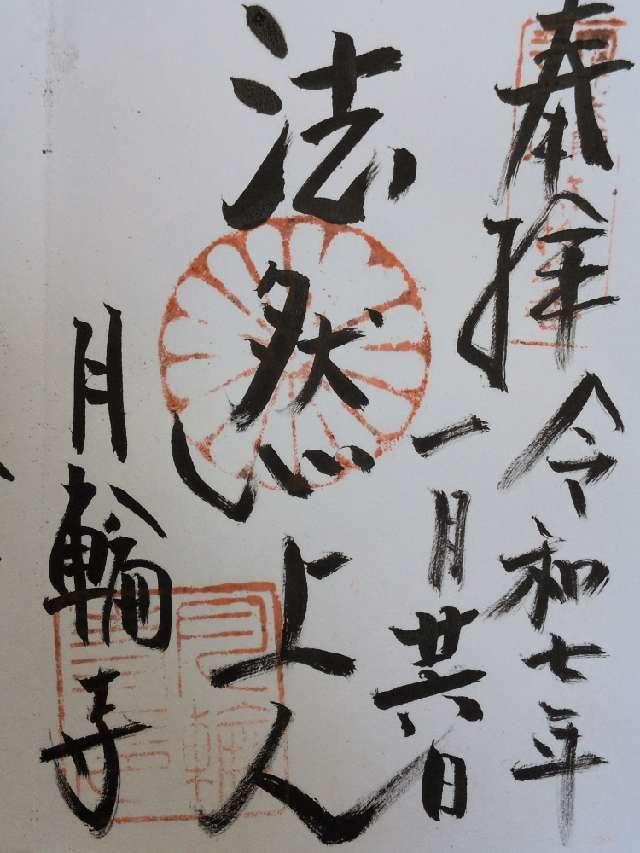 奉拝
令和七年
一月廿六日
法然上人
月輪寺